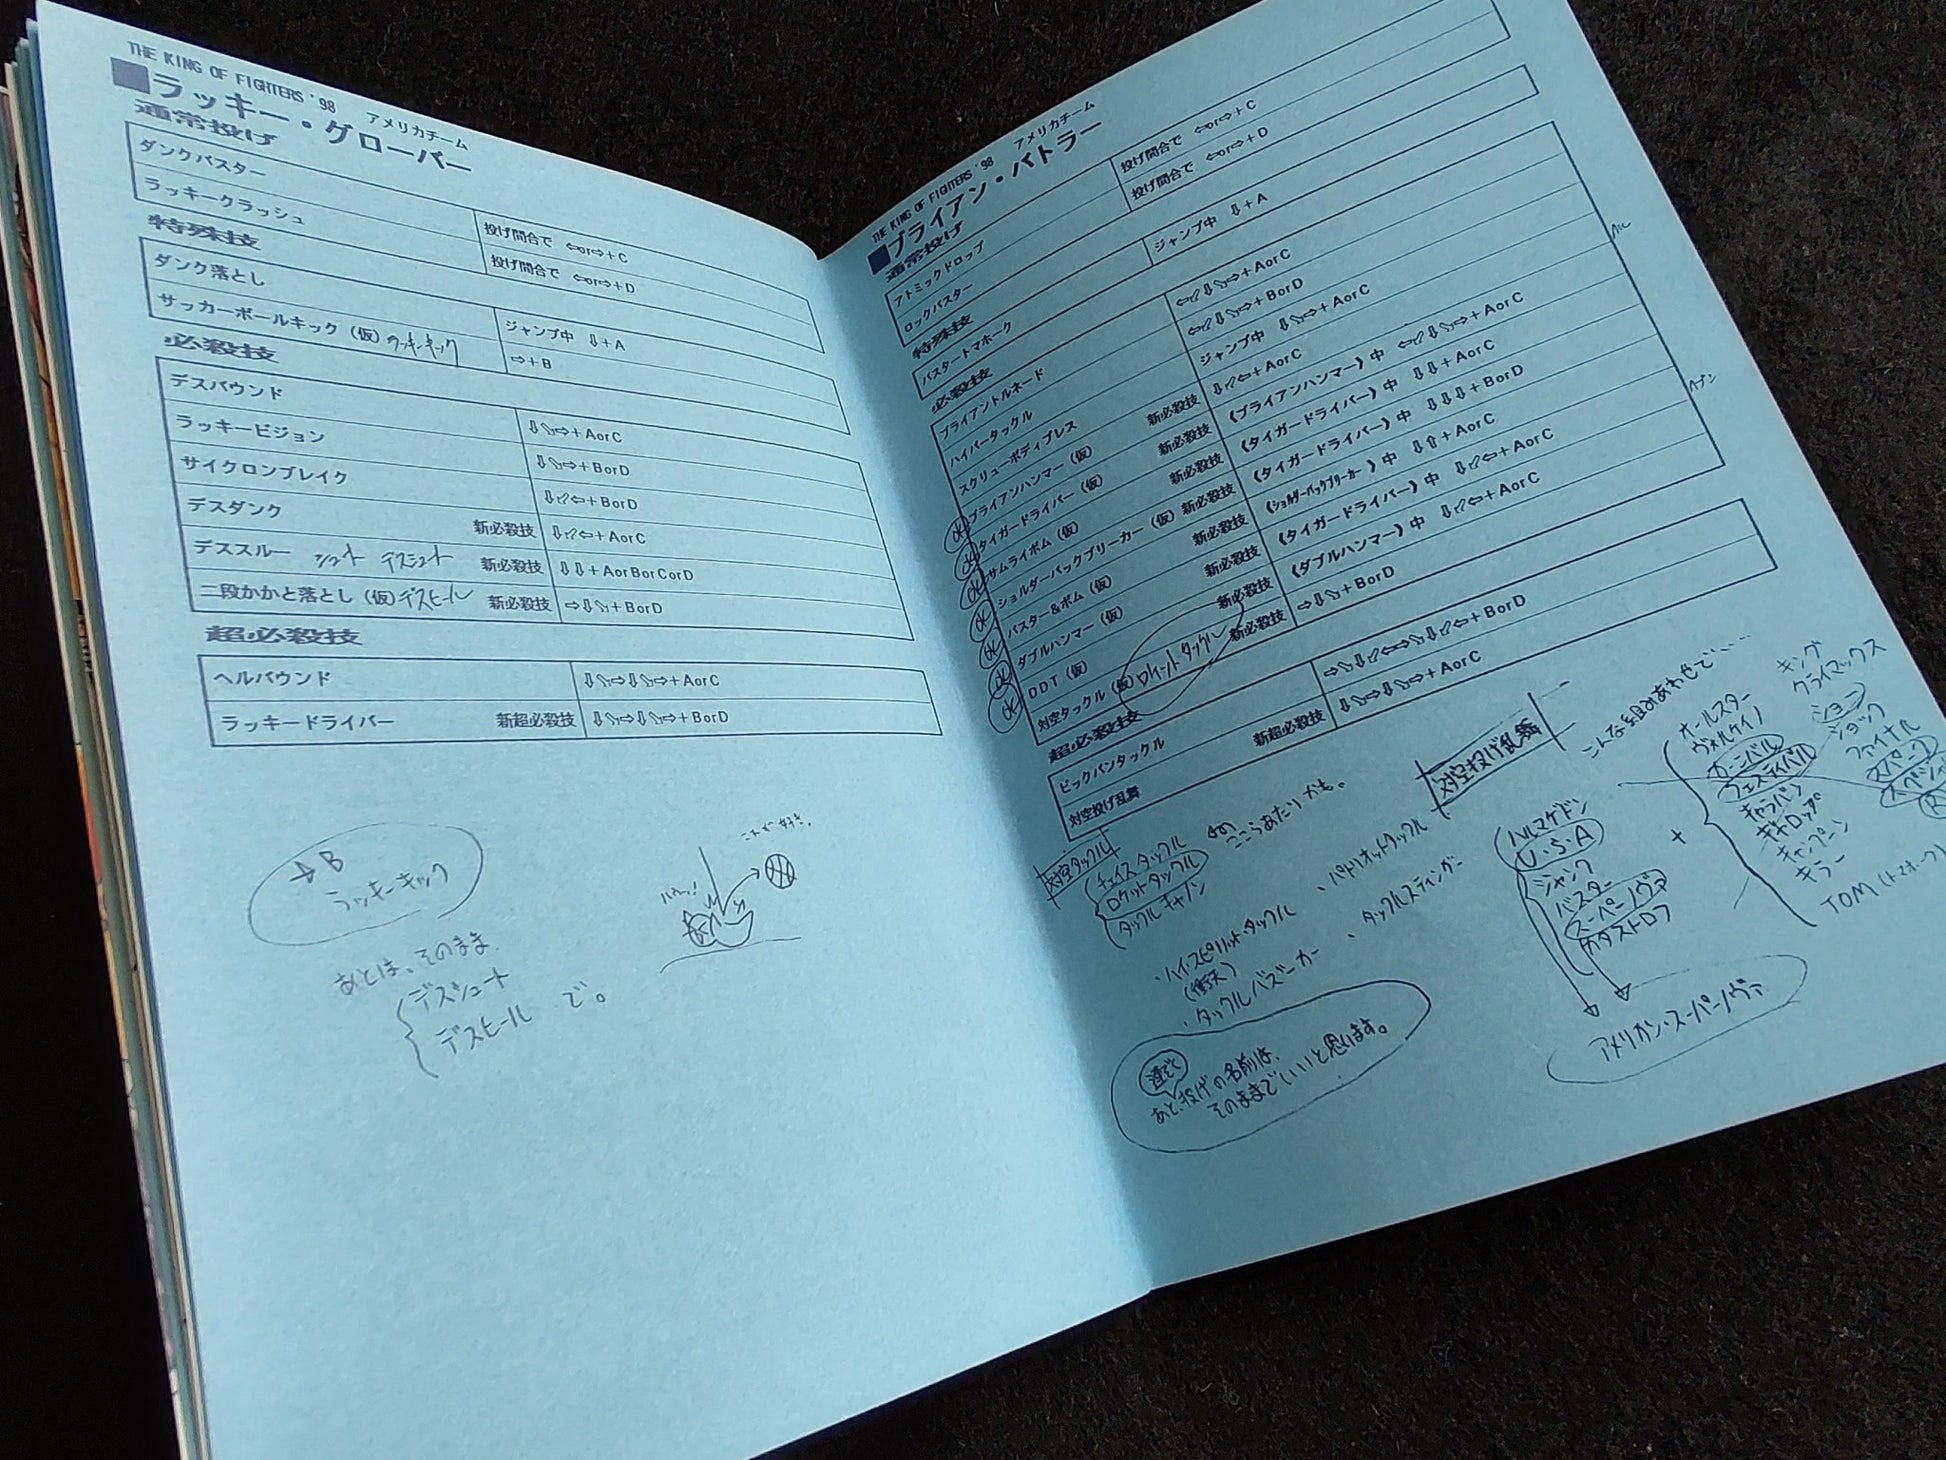 THE KING OF FIGHTERS '98 アメリカチーム
■ラッキー・グローバー
通常投げ
ダンクバスター 投げ間合で ⇦or⇨+C
ラッキークラッシュ 投げ間合で ⇦or⇨+D
特殊技
ダンク落とし ジャンプ中 ⇩+A
サッカーボールキック（仮）ラッキーキック ⇨+B
必殺技
デスバウンド ⇩⬂⇨+AorC
ラッキービジョン ⇩⬂⇨+BorD
サイクロンブレイク ⇩⬃⇦+BorD
デスダンク 新必殺技 ⇩⬃⇦+AorC
デススルー シュート デスシュート 新必殺技 ⇩⇩+AorBorCorD
二段かかと落とし（仮）デスヒール 新必殺技 ⇨⇩⬂+BorD
超必殺技
ヘルバウンド ⇩⬂⇨⇩⬂⇨+AorC
ラッキードライバー 新超必殺技 ⇩⬂⇨⇩⬂⇨+BorD
→B
ラッキーキック
あとは、そのまま
デスシュート
デスヒール で。
これが好き。
THE KING OF FIGHTERS '98 アメリカチーム
■ブライアン・バトラー
通常投げ
アトミックドロップ 投げ間合で ⇦or⇨+C
ロックバスター 投げ間合で ⇦or⇨+D
特殊技
バスタートマホーク ジャンプ中 ⇩+A
必殺技
ブライアントルネード ⇦⬃⇩⬂⇨+AorC
ハイパータックル ⇦⬃⇩⬂⇨+BorD
スクリューボディプレス ジャンプ中 ⇩⬂⇨+AorC
ブライアンハンマー（仮） 新必殺技 ⇩⬃⇦+AorC
タイガードライバー（仮） 新必殺技 《ブライアンハンマー》中 ⇦⬃⇩⬂⇨+AorC
サムライボム（仮） 新必殺技 《タイガードライバー》中 ⇩⇩+AorC
ショルダーバックブリーカー（仮）新必殺技 《タイガードライバー》中 ⇩⇩⇩+BorD
バスター&ボム（仮） 新必殺技 《ショルダーバックブリーカー》中 ⇩⇧+AorC
ダブルハンマー（仮） 新必殺技 《タイガードライバー》中 ⇩⬃⇦+AorC
DDT（仮） 新必殺技 《ダブルハンマー》中 ⇩⬃⇦+AorC
対空タックル（仮）ロケットタックル 新必殺技 ⇨⇩⬂+BorD
超必殺技
ビックバンタックル ⇨⬂⇩⬃⇦⇨⬂⇩⬃⇦+BorD
対空投げ乱舞 新超必殺技 ⇩⬂⇨⇩⬂⇨+AorC
OK
OK
OK
OK
OK
OK
OK
対空タックル
チェイスタックル
ロケットタックル
タックルキャノン
←の ここらあたりかも。
・ハイスピリットタックル
(衝天)
・タックルバズーカー
・パトリオットタックル
・タックルスティンガー
連ぞく
あと、投げの名前は、
そのままでいいと思います。
対空投げ乱舞
こんな組みあわせで……
ハルマゲドン
U・S・A
ジャンク
バスター
スーパーノヴァ
カタストロフ
+
オールスター
ヴォルケイノ
カーニバル
フェスティバル
キャラバン
ギャロップ
キャンペーン
キラー
キング
クライマックス
ショー
ショック
ファイナル
スパーク
TOM(トマホーク)
アメリカン・スーパーノヴァ